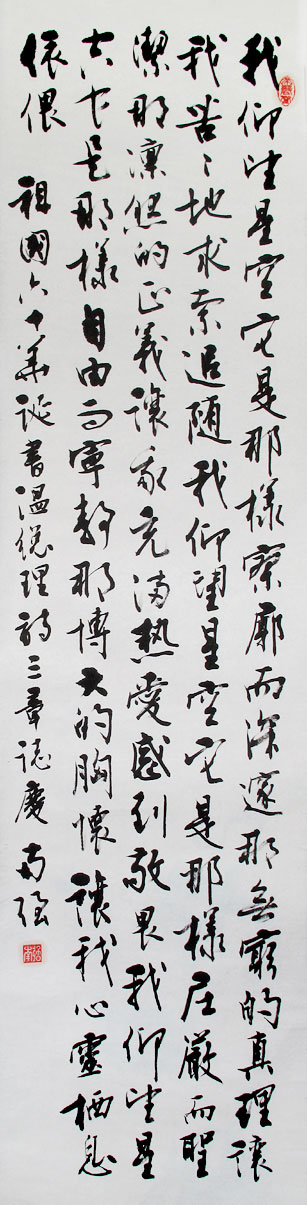 我仰望星空它是那樣寥廓而深邃那無窮的真理讓
我苦〻地求索追隨我仰望星空它是那樣莊嚴而聖
潔那凜然的正義讓我充滿熱愛感到敬畏我仰望星
空它是那樣自由而寧靜那博大的胸懷讓我心靈栖息
依偎 祖國六十華誕書溫總理詩三章誌慶 南强